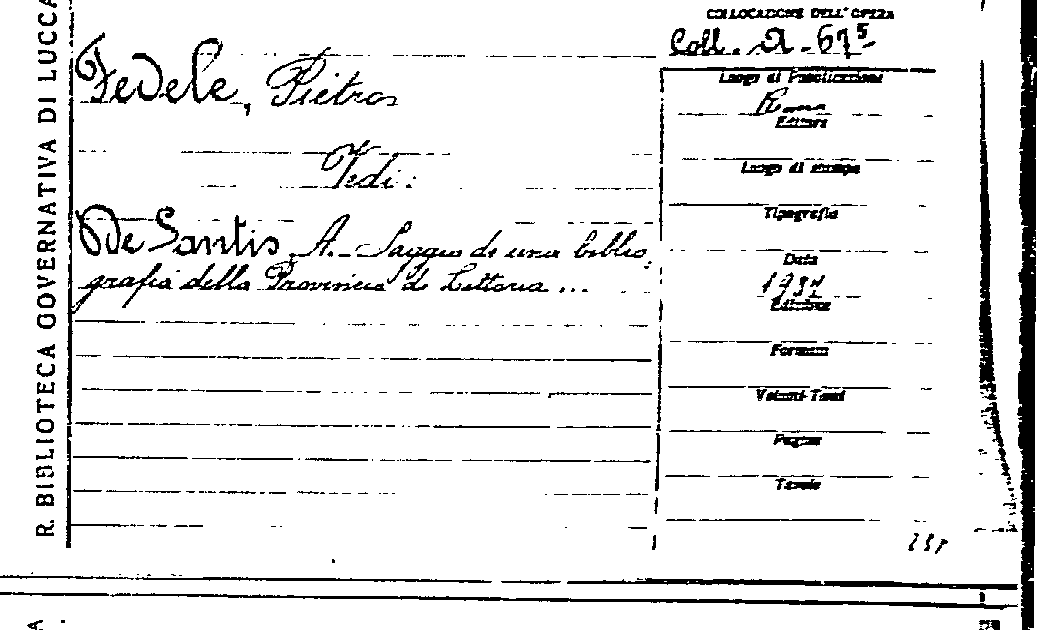 R. BIBLIOTECA GOVERNATIVA DI LUCCA
COLLOCAZIONE DELL'OPERA
Coll. A. 67⁵
Fedele, Pietro
Vedi:
De Santis A. - Saggio di una biblio-
grafia della Provincia di Littoria ...
Luogo di Pubblicazione
Roma
Editore
Luogo di stampa
Tipografia
Data
Edizione
Formato
Volumi-Tomi
Pagine
Tavole